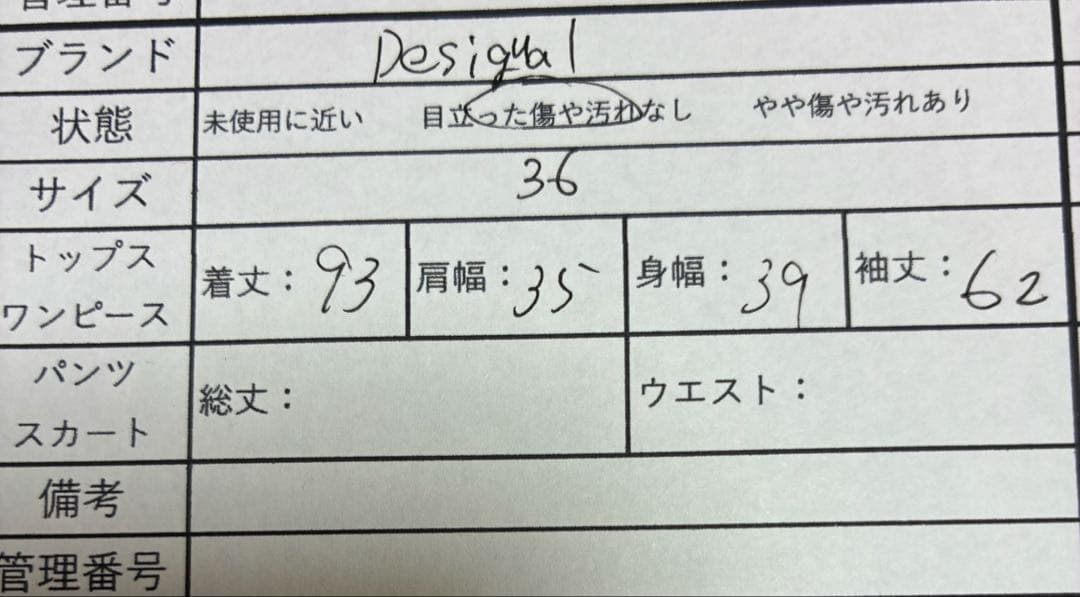 管理番号
ブランド Desigual
状態 未使用に近い 目立った傷や汚れなし やや傷や汚れあり
サイズ 36
トップス
ワンピース 着丈：93 肩幅：35 身幅：39 袖丈：62
パンツ
スカート 総丈： ウエスト：
備考
管理番号